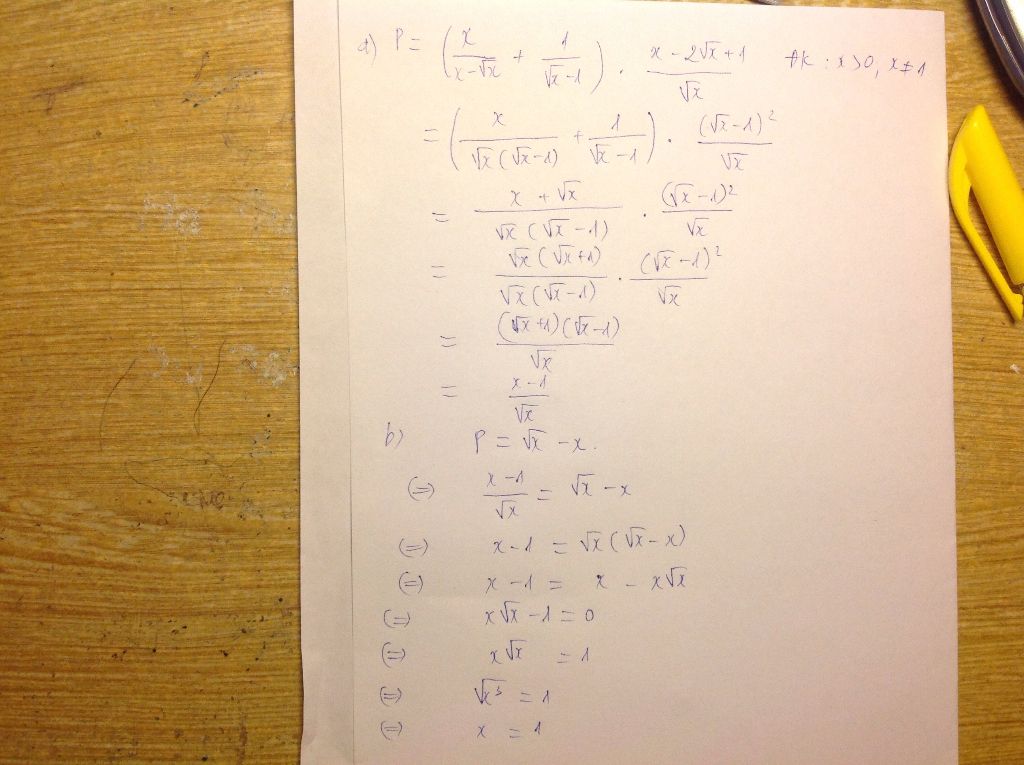 a) P = (x/(x-√x) + 1/(√x-1)) . (x-2√x+1)/√x đk : x>0, x≠1
= (x/(√x(√x-1)) + 1/(√x-1)) . (√x-1)²/√x
= (x+√x)/(√x(√x-1)) . (√x-1)²/√x
= (√x(√x+1))/(√x(√x-1)) . (√x-1)²/√x
= ((√x+1)(√x-1))/√x
= (x-1)/√x
b) P = √x - x.
(=) (x-1)/√x = √x - x
(=) x-1 = √x(√x-x)
(=) x-1 = x - x√x
(=) x√x - 1 = 0
(=) x√x = 1
(=) √x³ = 1
(=) x = 1